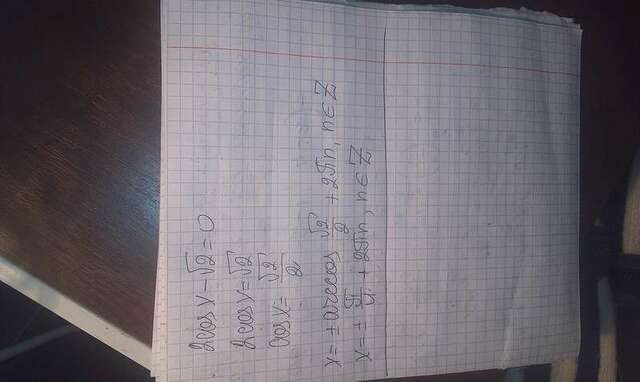 2cos x - √2 = 0
2cos x = √2
cos x = √2/2
x = ± arccos √2/2 + 2πn, n ∈ Z
x = ± π/4 + 2πn, n ∈ Z